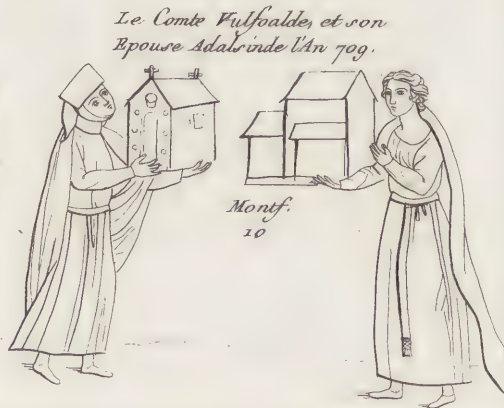 Le Comte Vulfoalde, et son
Epouse Adalsinde l'An 709.
Montf.
10